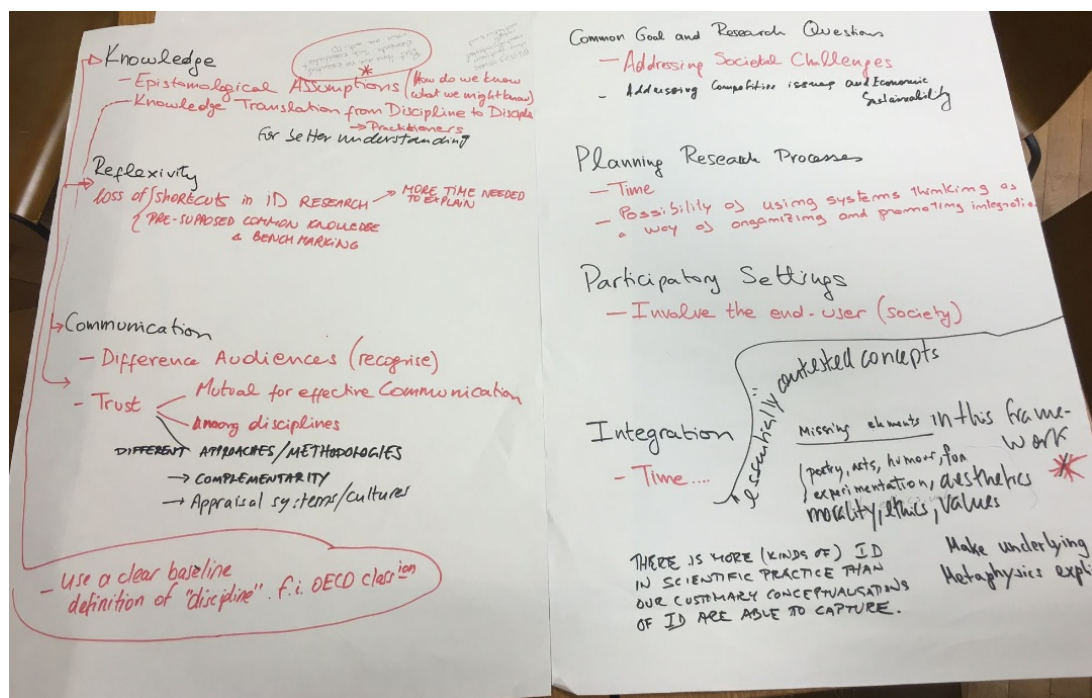 Knowledge
- Epistomological Assumptions (How do we know
what we might know)
- Knowledge Translation from Discipline to Discipl
→ Practitioners
For better understanding
Reflexivity
loss of shortcuts in ID RESEARCH → MORE TIME NEEDED
TO EXPLAIN
PRE-SUPPOSED COMMON KNOWLEDGE
& BENCH MARKING
Communication
- Difference Audiences (recognise)
- Trust
Mutual for effective Communication
Among disciplines
DIFFERENT APPROACHES/METHODOLOGIES
→ COMPLEMENTARITY
→ Appraisal systems/cultures
- use a clear baseline
definition of "discipline". f.i. OECD classion
Common Goal and Research Questions
- Addressing Societal Challenges
- Addressing Competitive issues and Economic
Sustainability
Planning Research Processes
- Time
- Possibility of using systems thinking as
a way of organizing and promoting integratio
Participatory Settings
- Involve the end-user (society)
"essentially contested concepts
Integration
- Time....
Missing elements in this frame-
work
(poetry, arts, humour, fun
experimentation, aesthetics
morality, ethics, values
THERE IS MORE (KINDS OF) ID
IN SCIENTIFIC PRACTICE THAN
OUR CUSTOMARY CONCEPTUALISATIONS
OF ID ARE ABLE TO CAPTURE.
Make underlying
Metaphysics expli